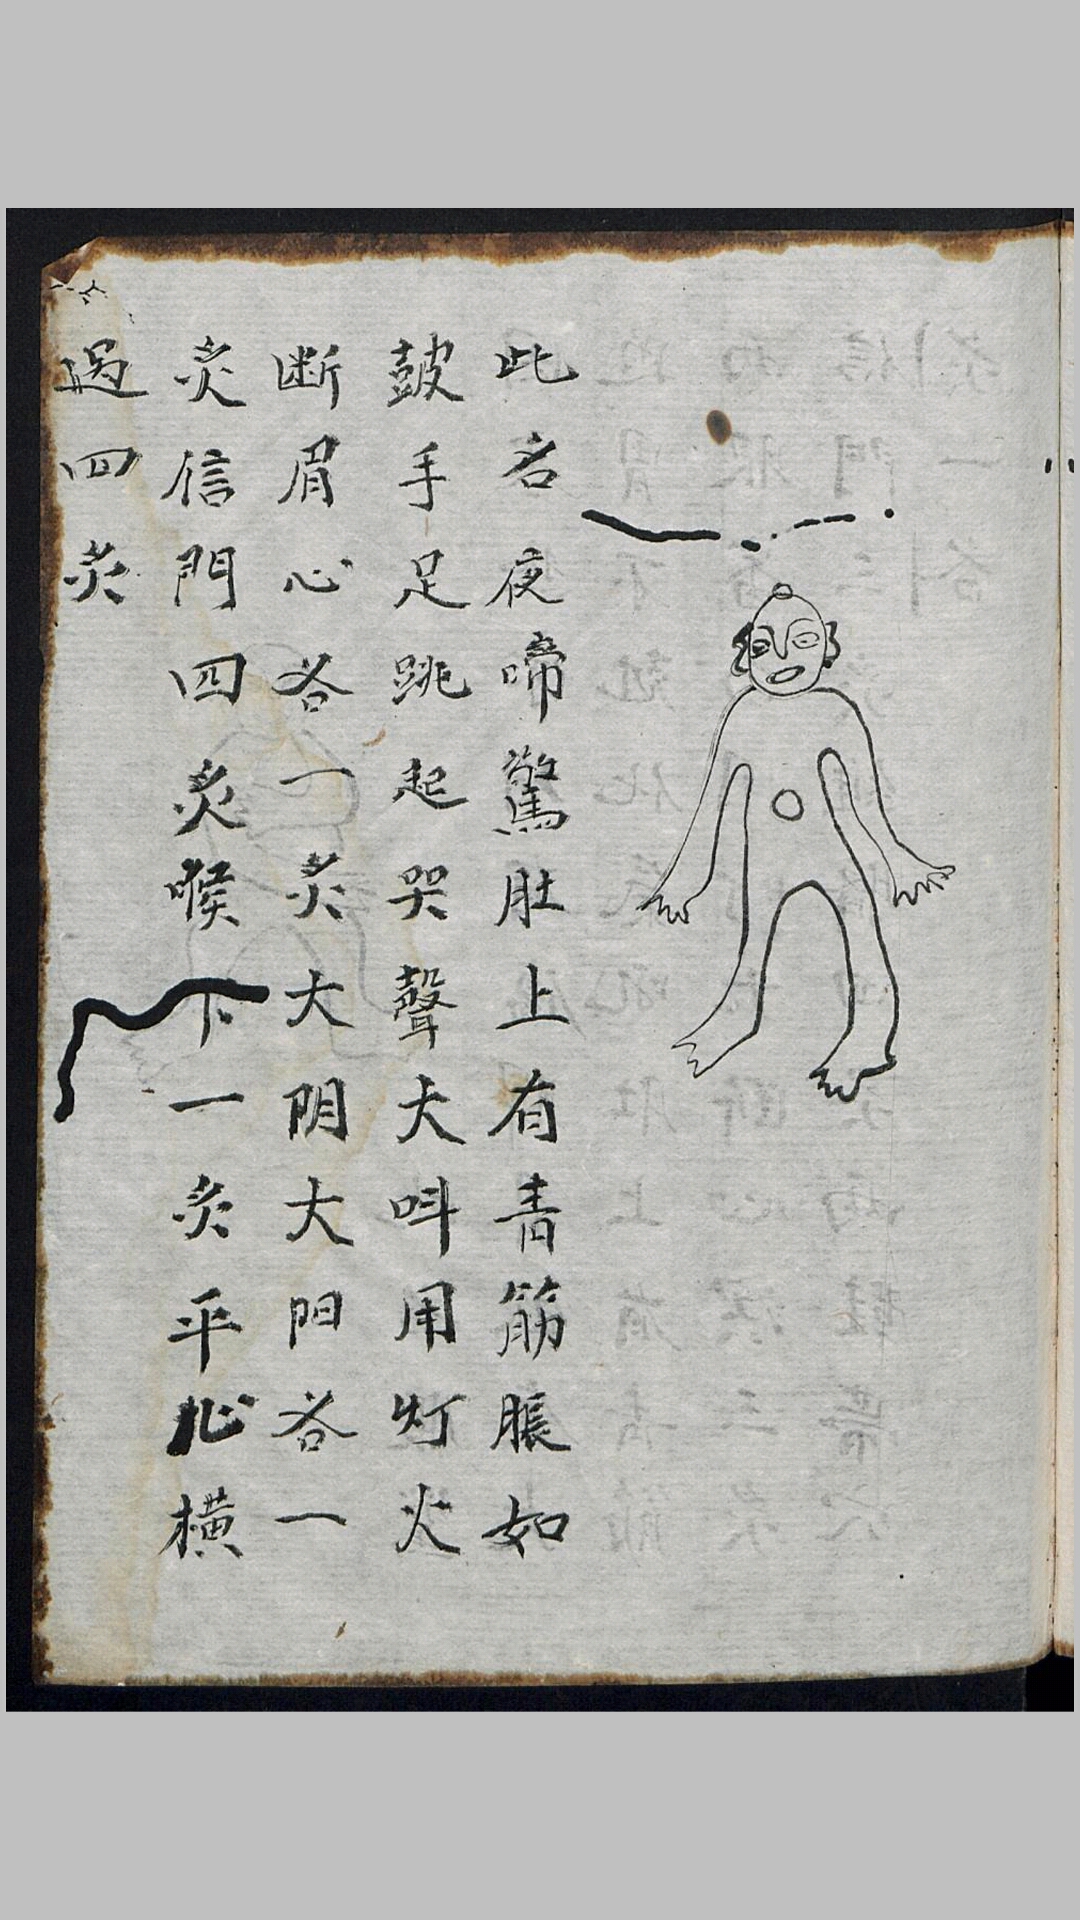 此名夜啼驚肚上有青筋脹如
皷手足跳起哭聲大呌用灯火
断眉心各一炙大阴大阳各一
炙信門四炙喉下一炙平心橫
過四炙